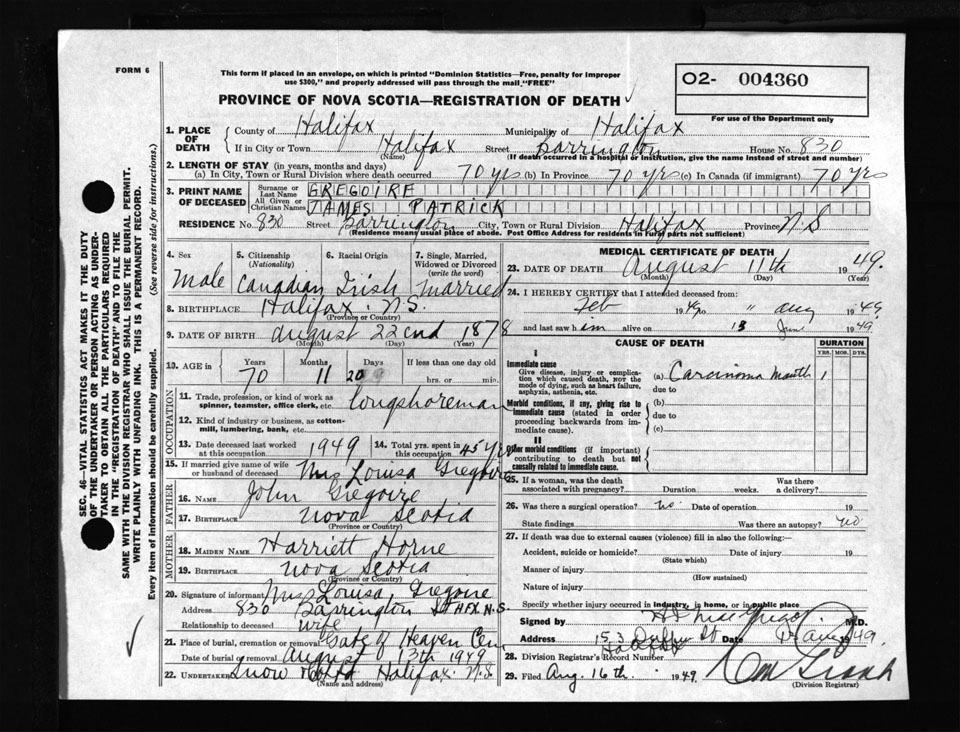 FORM 6
This form if placed in an envelope, on which is printed "Dominion Statistics—Free, penalty for improper
use $300," and properly addressed will pass through the mail "FREE"
O2- 004360
For use of the Department only
PROVINCE OF NOVA SCOTIA—REGISTRATION OF DEATH
1. PLACE OF DEATH County of Halifax Municipality of Halifax
If in City or Town Halifax Street Barrington House No. 830
(Name) (If death occurred in a hospital or institution, give the name instead of street and number)
2. LENGTH OF STAY (in years, months and days)
(a) In City, Town or Rural Division where death occurred 70 yrs (b) In Province 70 yrs (c) In Canada (if immigrant) 70 yrs
3. PRINT NAME OF DECEASED Surname or Last Name GREGOIRE
All Given or Christian Names JAMES PATRICK
RESIDENCE No. 830 Street Barrington City, Town or Rural Division Halifax Province N.S
(Residence means usual place of abode. Post Office Address for Residents in Rural parts not sufficient)
4. Sex 5. Citizenship (Nationality) 6. Racial Origin 7. Single, Married, Widowed or Divorced (write the word)
Male Canadian Irish Married
8. BIRTHPLACE Halifax N.S
(Province or Country)
9. DATE OF BIRTH August 22nd 1878
(Month) (Day) (Year)
10. AGE in Years Months Days If less than one day old
70 11 20 hrs. or min.
OCCUPATION
11. Trade, profession, or kind of work as spinner, teamster, office clerk, etc. Longshoreman
12. Kind of industry or business, as cotton-mill, lumbering, bank, etc.
13. Date deceased last worked at this occupation 1949 14. Total yrs. spent in this occupation 45 yrs
15. If married give name of wife or husband of deceased Mrs Louisa Gregoire
FATHER
16. NAME John Gregoire
17. BIRTHPLACE Nova Scotia
(Province or Country)
MOTHER
18. MAIDEN NAME Harriett Horne
19. BIRTHPLACE Nova Scotia
(Province or Country)
20. Signature of informant Mrs Louisa Gregoire
Address 830 Barrington St HFX N.S.
Relationship to deceased wife
21. Place of burial, cremation or removal Gate of Heaven Cem
Date of burial or removal August 13th 1949
22. UNDERTAKER Snow Halifax N.S
(Name and address)
MEDICAL CERTIFICATE OF DEATH
23. DATE OF DEATH August 11th 1949.
(Month) (Day)
24. I HEREBY CERTIFY that I attended deceased from:
Feb 1949 to " Aug 1949
and last saw him alive on 13 June 1949
CAUSE OF DEATH DURATION
YRS. MOS. DYS.
I
Immediate cause
Give disease, injury or complication which caused death, not the mode of dying, such as heart failure, asphyxia, asthenia, etc.
(a) Carcinoma Mouth 1
due to
Morbid conditions, if any, giving rise to immediate cause (stated in order proceeding backwards from immediate cause).
(b)
due to
(c)
II
Other morbid conditions (if important) contributing to death but not causally related to immediate cause.
25. If a woman, was the death associated with pregnancy? Duration weeks. Was there a delivery?
26. Was there a surgical operation? no Date of operation 19
State findings Was there an autopsy? no
27. If death was due to external causes (violence) fill in also the following:—
Accident, suicide or homicide? Date of injury 19
(State which)
Manner of injury
(How sustained)
Nature of injury
Specify whether injury occurred in industry, in home, or in public place
Signed by M.D.
Address 153 St Date 1949.
Halifax
28. Division Registrar's Record Number
29. Filed Aug. 16th. 1949
(Division Registrar)
SEC. 46—VITAL STATISTICS ACT MAKES IT THE DUTY
OF THE UNDERTAKER OR PERSON ACTING AS UNDER-
TAKER TO OBTAIN ALL THE PARTICULARS REQUIRED
IN THE "REGISTRATION OF DEATH" AND TO FILE THE
SAME WITH THE DIVISION REGISTRAR WHO SHALL ISSUE THE BURIAL PERMIT.
WRITE PLAINLY WITH UNFADING INK. THIS IS A PERMANENT RECORD.
Every item of information should be carefully supplied. (See reverse side for instructions.)